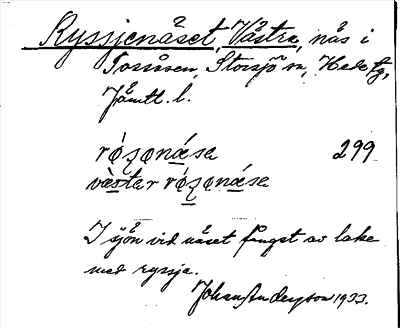 Ryssjenäset, Västra, näs i
Torsåsen, Storsjö sn, Hede tg,
Jämtl. l.
røʂənǽsa 299
væstar røʂənǽsa
I sjön vid näset fångst av lake
med ryssja.
Johan Anderson 1933.